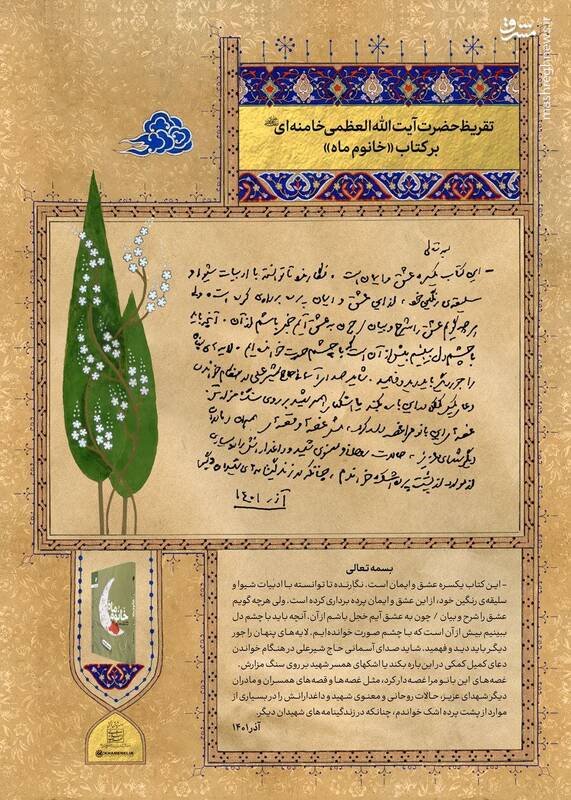 تقریظ حضرت آیت الله العظمی خامنه‌ای
بر کتاب «خانوم ماه»
بسمه تعالی
- این کتاب یکسره عشق و ایمان است. نگارنده تا توانسته با ادبیات شیوا و
سلیقه‌ی رنگین خود، از این عشق و ایمان پرده برداری کرده است. ولی هرچه گویم
عشق را شرح و بیان / چون به عشق آیم خجل باشم از آن. آنچه باید با چشم دل
ببینیم بیش از آن است که با چشم صورت خوانده‌ایم. لایه‌های پنهان را جور
دیگر باید دید و فهمید. شاید صدای آسمانی حاج شیرعلی در هنگام خواندن
دعای کمیل کمکی در این باره بکند یا اشکهای همسر شهید بر روی سنگ مزارش.
غصه‌های این بانو مرا غصه دار کرد، مثل غصه‌ها و قصه‌های همسران و مادران
دیگر شهدای عزیز. حالات روحانی و معنوی شهید و داغدارانش را در بسیاری از
موارد از پشت پرده اشک خواندم، چنانکه در زندگینامه‌های شهیدان دیگر.
آذر ۱۴۰۱
بسمه تعالی
- این کتاب یکسره عشق و ایمان است. نگارنده تا توانسته با ادبیات شیوا و
سلیقه‌ی رنگین خود، از این عشق و ایمان پرده برداری کرده است. ولی هرچه گویم
عشق را شرح و بیان / چون به عشق آیم خجل باشم از آن. آنچه باید با چشم دل
ببینیم بیش از آن است که با چشم صورت خوانده‌ایم. لایه‌های پنهان را جور
دیگر باید دید و فهمید. شاید صدای آسمانی حاج شیرعلی در هنگام خواندن
دعای کمیل کمکی در این باره بکند یا اشکهای همسر شهید بر روی سنگ مزارش.
غصه‌های این بانو مرا غصه دار کرد، مثل غصه‌ها و قصه‌های همسران و مادران
دیگر شهدای عزیز. حالات روحانی و معنوی شهید و داغدارانش را در بسیاری از
موارد از پشت پرده اشک خواندم، چنانکه در زندگینامه‌های شهیدان دیگر.
آذر ۱۴۰۱
خانوم ماه
KHAMENEI.IR
مشرق
mashreghnews.ir